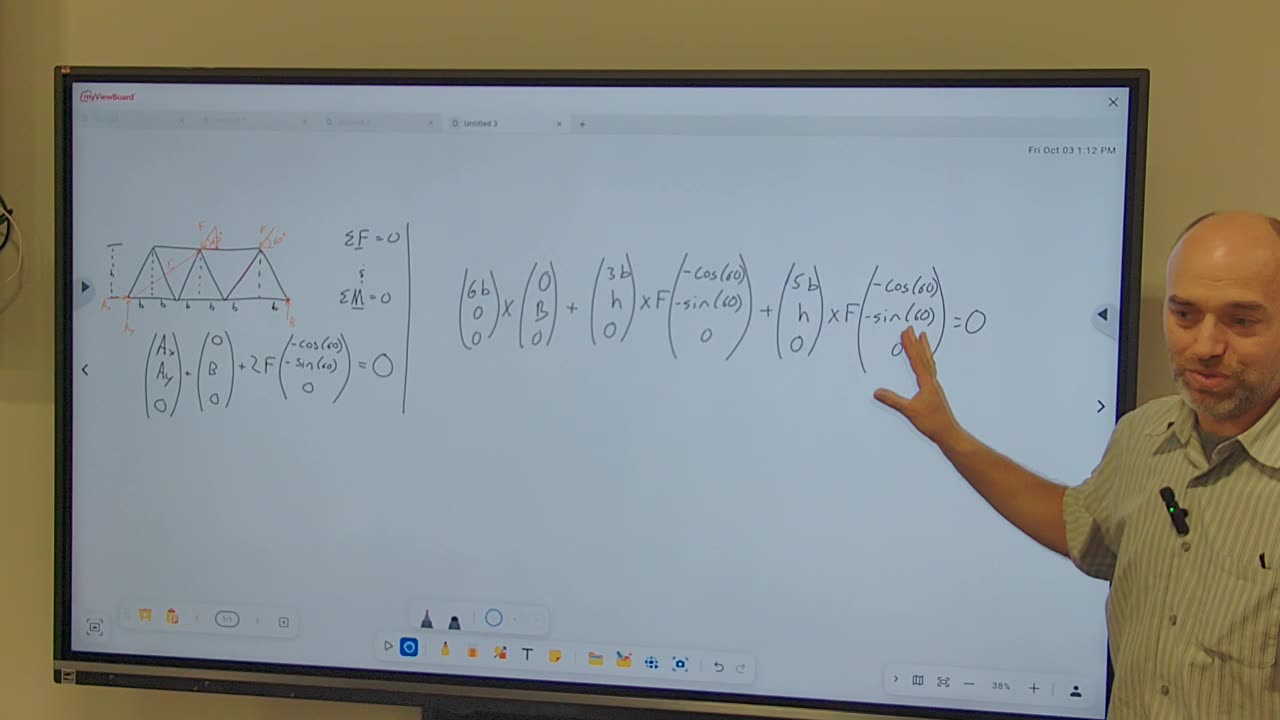 myViewBoard
Untitled 3
Fri Oct 03 1:12 PM
F F
60°
r
h
Ax
Ay b b b b b b B
ΣF = 0
;
ΣM = 0
(Ax Ay 0) + (0 B 0) + 2F (-cos(60) -sin(60) 0) = 0
(6b 0 0) × (0 B 0) + (3b h 0) × F (-cos(60) -sin(60) 0) + (5b h 0) × F (-cos(60) -sin(60) 0) = 0
1/1
T
38%